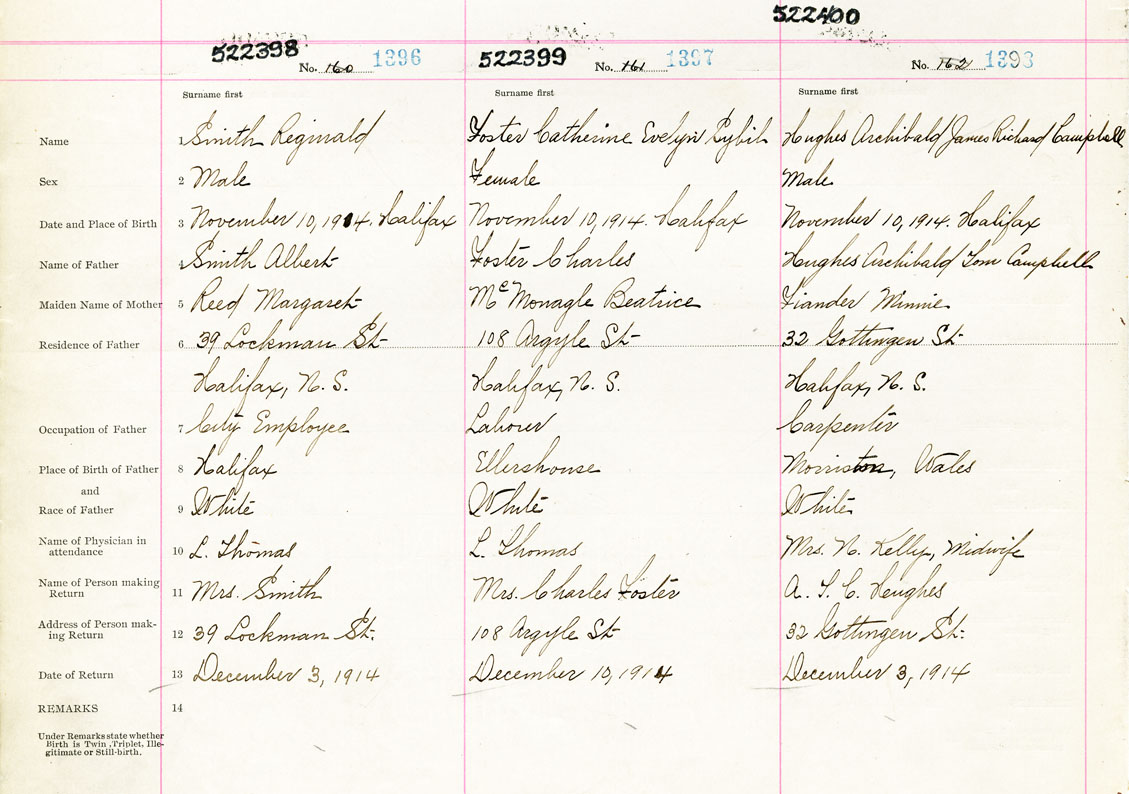 522400
522398 522399
No. 160 1396 No. 161 1397 No. 162 1398
Surname first Surname first Surname first
Name 1 Smith Reginald Foster Catherine Evelyn Sybil Hughes Archibald James Richard Campbell
Sex 2 Male Female Male
Date and Place of Birth 3 November 10, 1914. Halifax November 10, 1914. Halifax November 10, 1914. Halifax
Name of Father 4 Smith Albert Foster Charles Hughes Archibald Tom Campbell
Maiden Name of Mother 5 Reed Margaret McMonagle Beatrice Fiander Minnie
Residence of Father 6 39 Lockman St 108 Argyle St 32 Gottingen St
Halifax, N. S. Halifax, N. S. Halifax, N. S.
Occupation of Father 7 City Employee Laborer Carpenter
Place of Birth of Father 8 Halifax Ellershouse Morriston, Wales
and
Race of Father 9 White White White
Name of Physician in
attendance 10 L. Thomas L. Thomas Mrs. N. Kelly, Midwife
Name of Person making
Return 11 Mrs. Smith Mrs. Charles Foster A. T. C. Hughes
Address of Person mak-
ing Return 12 39 Lockman St. 108 Argyle St 32 Gottingen St.
Date of Return 13 December 3, 1914 December 10, 1914 December 3, 1914
REMARKS 14
Under Remarks state whether
Birth is Twin, Triplet, Ille-
gitimate or Still-birth.